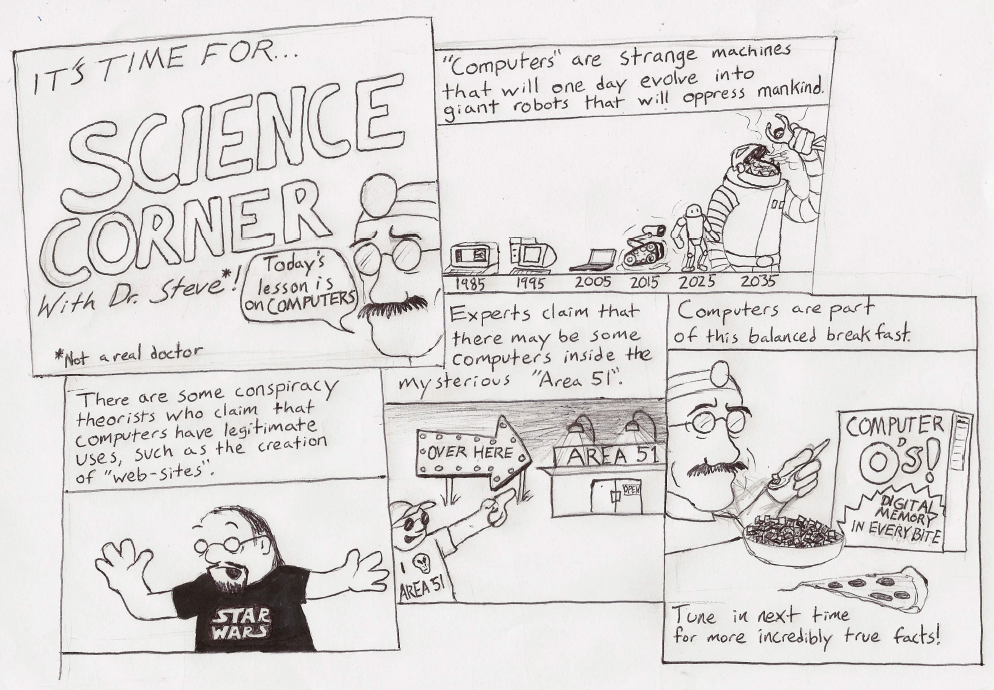 IT'S TIME FOR...
SCIENCE
CORNER
With Dr. Steve*!
Today's
lesson is
on COMPUTERS
*Not a real doctor
"Computers" are strange machines
that will one day evolve into
giant robots that will oppress mankind.
1985 1995 2005 2015 2025 2035
There are some conspiracy
theorists who claim that
computers have legitimate
uses, such as the creation
of "web-sites".
STAR
WARS
Experts claim that
there may be some
computers inside the
mysterious "Area 51".
OVER HERE
AREA 51
OPEN
I
AREA 51
Computers are part
of this balanced breakfast.
COMPUTER
O'S!
DIGITAL
MEMORY
IN EVERY BITE
Tune in next time
for more incredibly true facts!